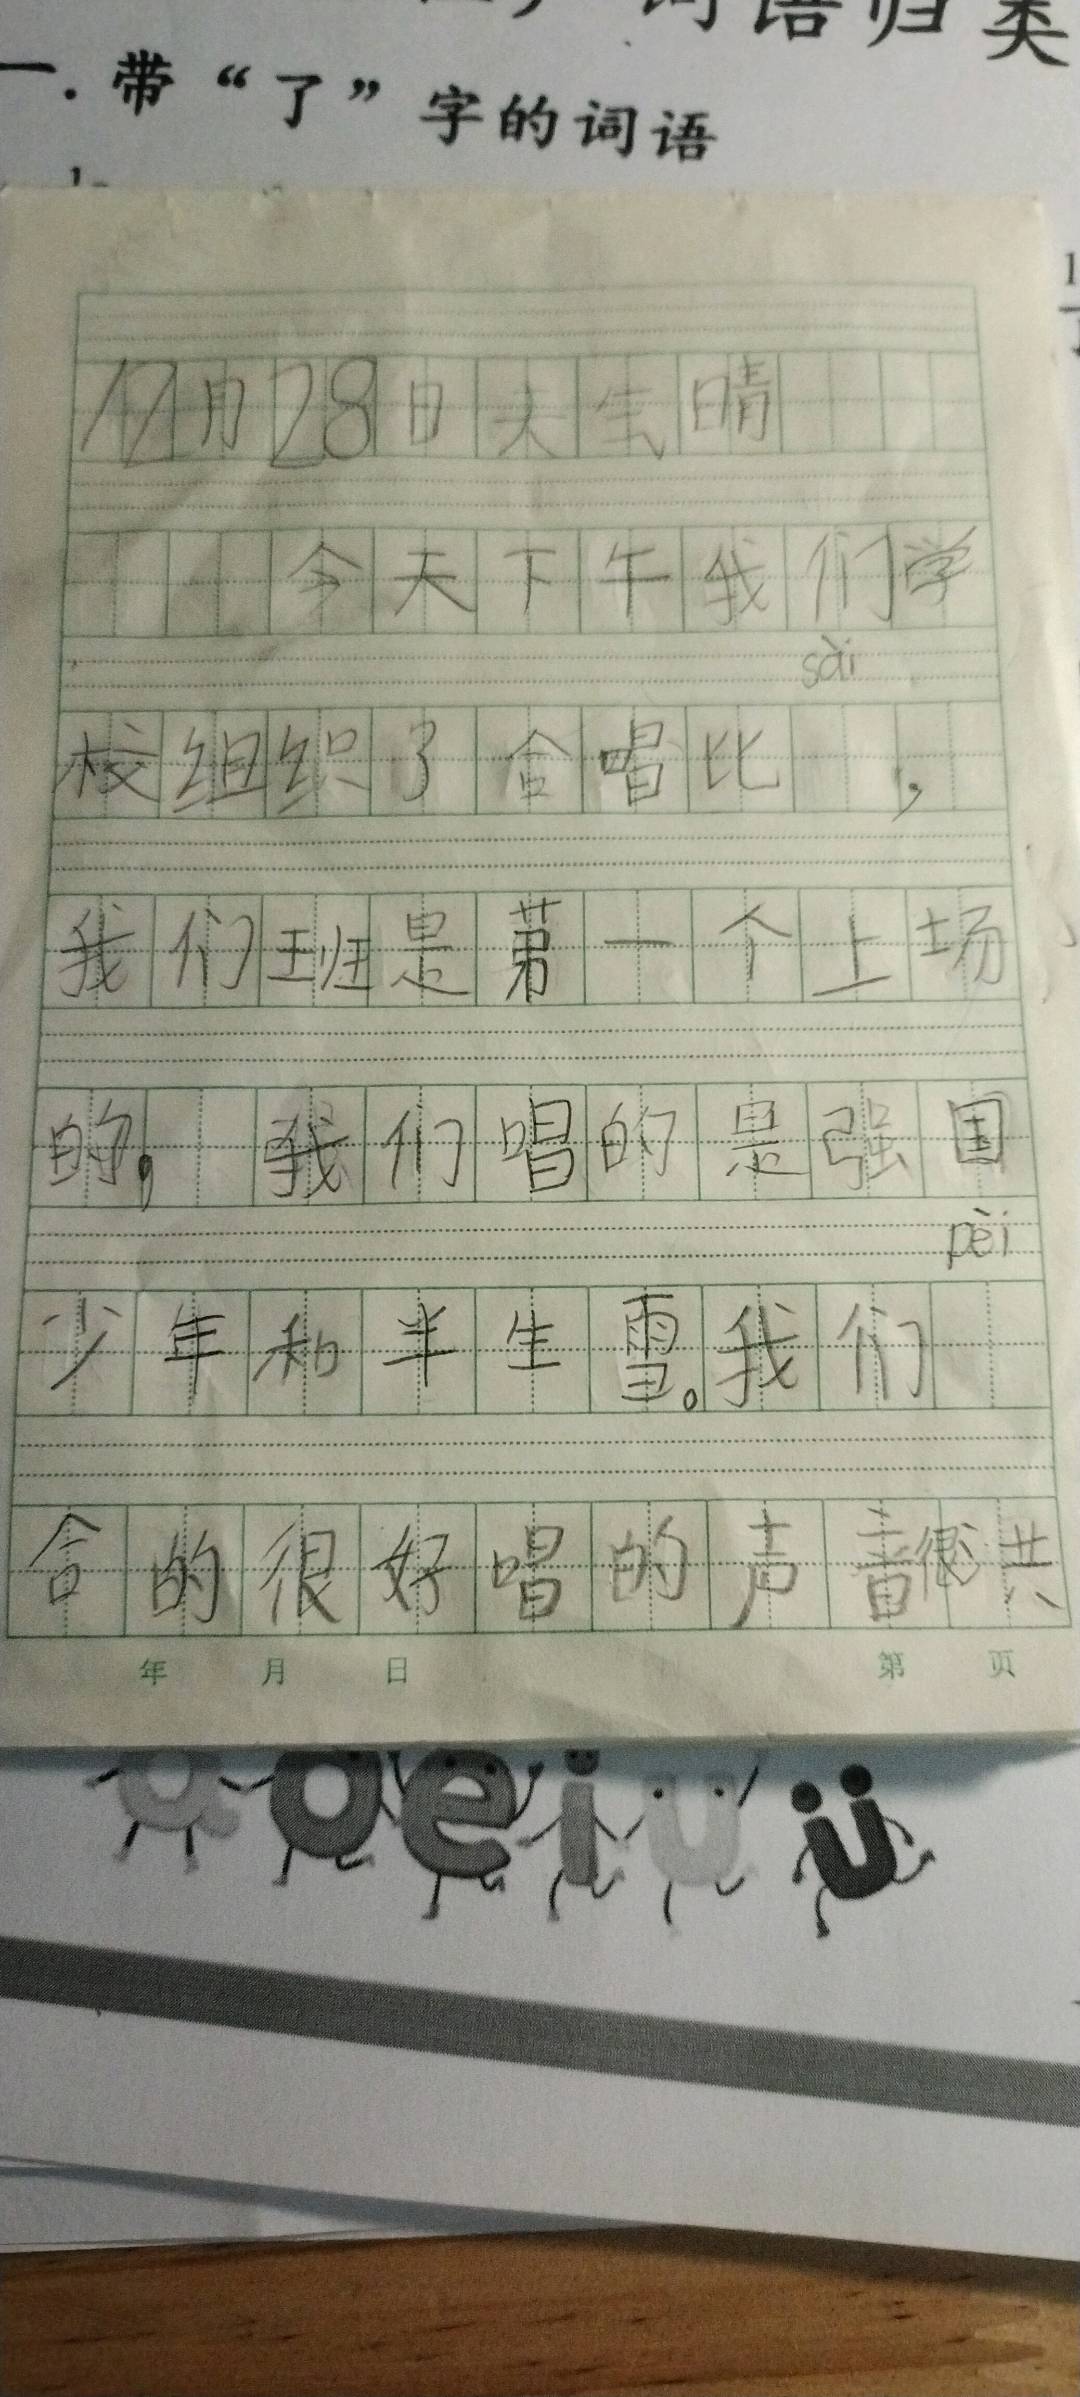 词语归类
一. 带“了”字的词语
12月28日天气晴
今天下午我们学
sài
校组织了合唱比 ,
我们班是第一个上场
的, 我们唱的是强国
pèi
少年和半生雪。我们
合的很好唱的声音很共
年 月 日 第 页
a o e i u ü